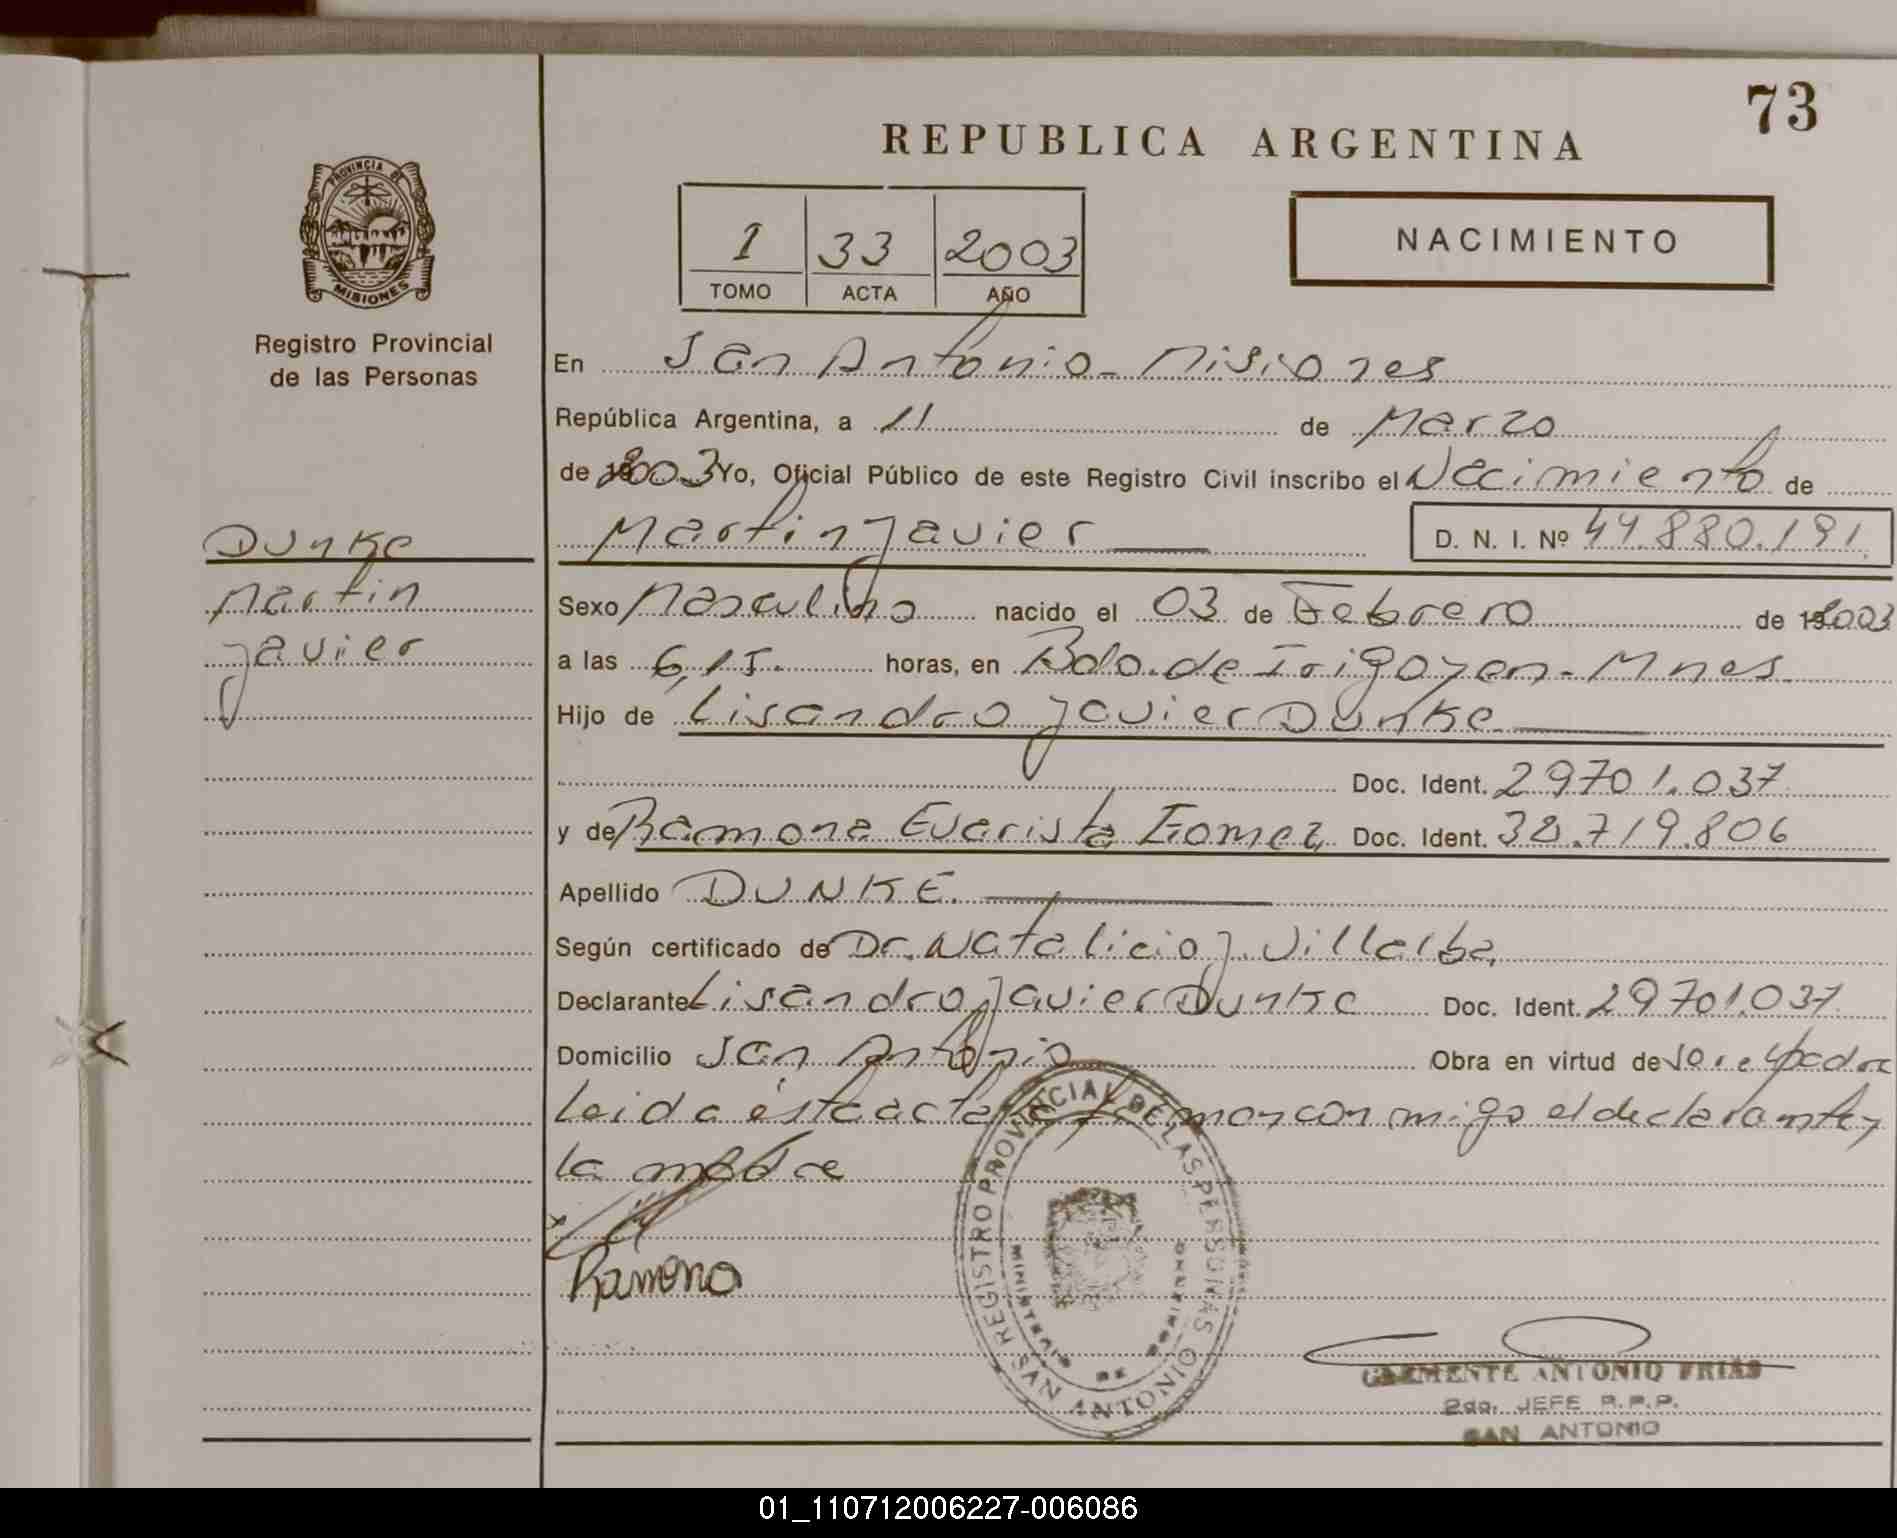 73
REPUBLICA ARGENTINA
PROVINCIA DE
MISIONES
Registro Provincial
de las Personas
1 33 2003
TOMO ACTA AÑO
NACIMIENTO
En San Antonio - Misiones
República Argentina, a 11 de Marzo
de 2003 Yo, Oficial Público de este Registro Civil inscribo el Nacimiento de
Dunke
Martin
Javier
Martin Javier
D. N. I. Nº 44.880.191.
Sexo Masculino nacido el 03 de Febrero de 2003
a las 6,15. horas, en Bdo. de Irigoyen - Mnes.
Hijo de Lisandro Javier Dunke
Doc. Ident. 29701.037
y de Ramona Evarista Gomez Doc. Ident. 38.719.806
Apellido DUNKE.
Según certificado de Dr. Natalicio J. Villalba
Declarante Lisandro Javier Dunke Doc. Ident. 29701.037
Domicilio San Antonio Obra en virtud de ser el padre
Leida ésta acta la firman conmigo el declarante y
la madre
Ramona
REGISTRO PROVINCIAL DE LAS PERSONAS
SAN ANTONIO
CLEMENTE ANTONIO FRIAS
2do. JEFE R.P.P.
SAN ANTONIO
01_110712006227-006086